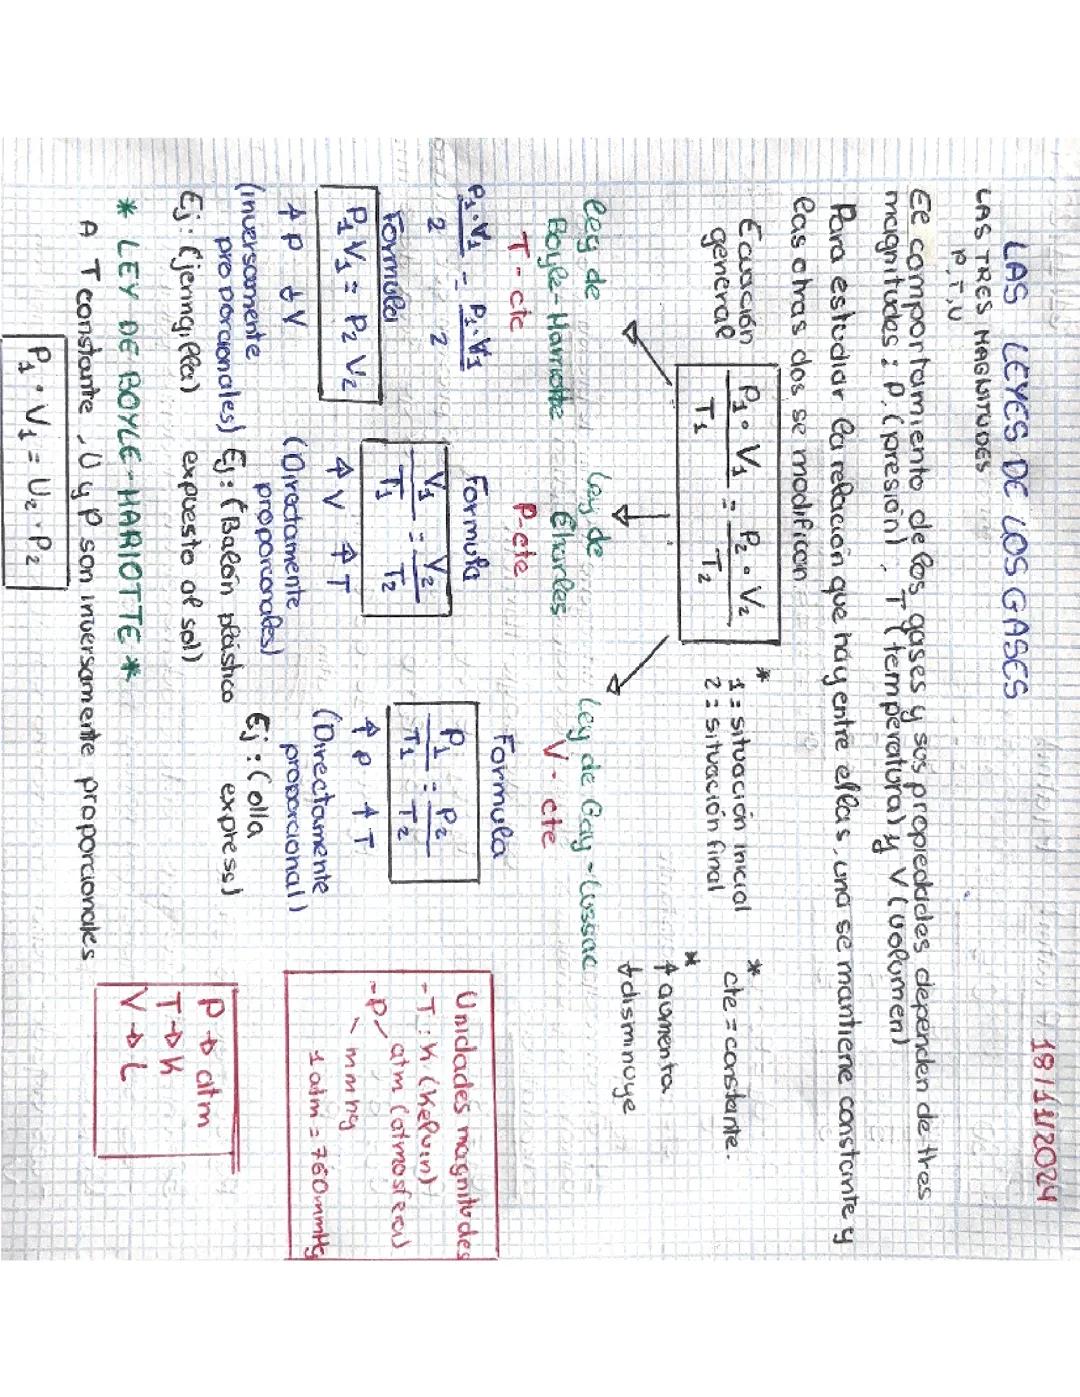 18/11/2024
LAS LEYES DE LOS GASES
LAS TRES MAGNITUDES
P, T, V
El comportamiento de los gases y sos propiedades dependen de tres
magnitudes: P.(presión), T (temperatura) y V (volumen)
Para estudiar la relación que hay entre ellas, una se mantiene constante y
las otras dos se modifican.
Ecuación
general
P₁ • V₁ / T₁ = P₂ • V₂ / T₂
*
1 = situación inicial
2 = situación final
*
cte = constante.
*
↑ aumenta
↓ disminuye
ley de
Boyle-Mariotte
T - cte
P₁ · V₁ / 2 = P₁ · V₁ / 2
Formula
P₁ V₁ = P₂ V₂
↑ P ↓ V
(inversamente
proporcionales)
Ej: (jeringilla)
Ley de
Charles
P-cte
Formula
V₁ / T₁ = V₂ / T₂
↑ V ↑ T
(Directamente
proporcionales)
Ej: (Balón plástico
expuesto al sol)
Ley de Gay-Lussac
V - cte
Formula
P₁ / T₁ = P₂ / T₂
↑ P ↑ T
(Directamente
proporcional)
Ej: (olla
express)
Unidades magnitudes
- T: K (Kelvin)
- P atm (atmosfera)
mmHg
1 atm = 760mmHg
* LEY DE BOYLE-MARIOTTE *
A T constante, V y P son inversamente proporcionales
P₁ • V₁ = V₂ • P₂
P → atm
T → K
V → L